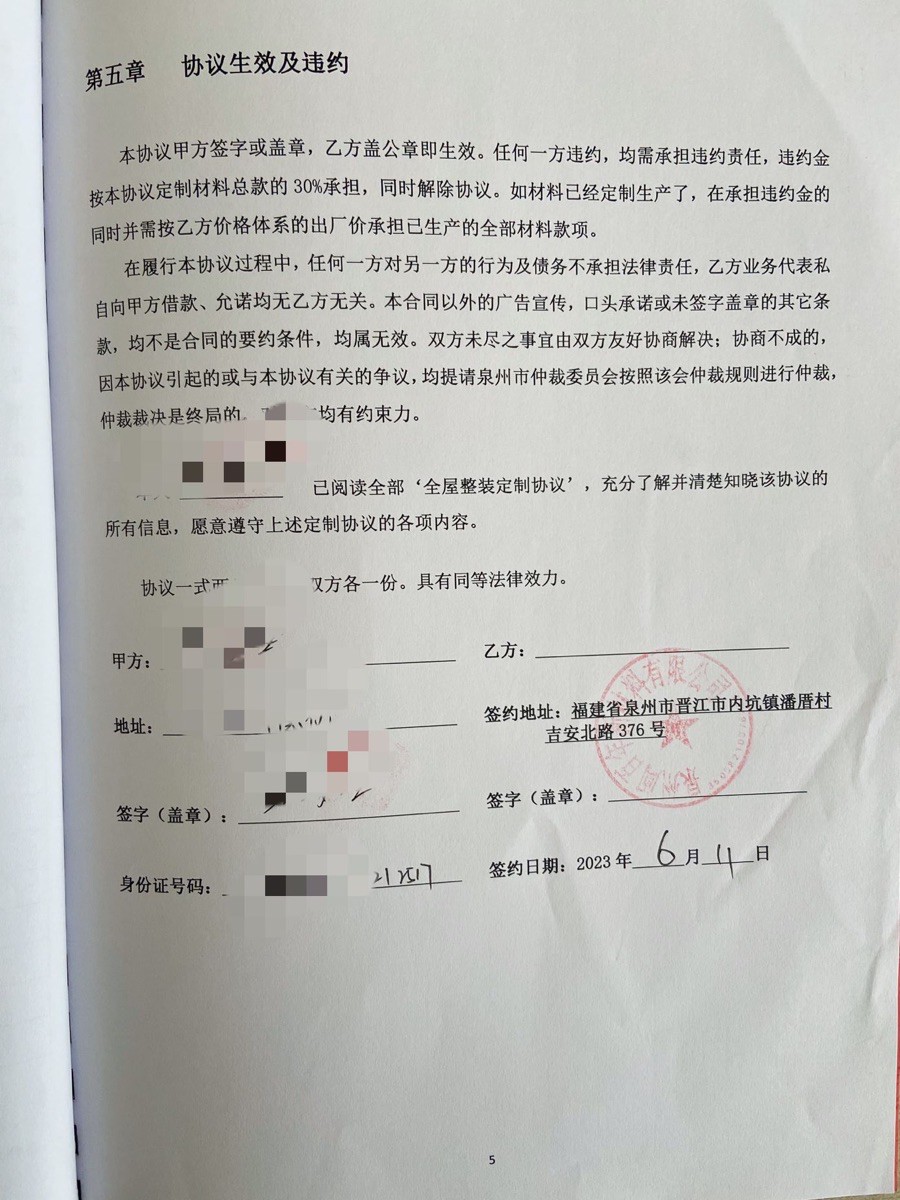 第五章 协议生效及违约
本协议甲方签字或盖章，乙方盖公章即生效。任何一方违约，均需承担违约责任，违约金
按本协议定制材料总款的 30%承担，同时解除协议。如材料已经定制生产了，在承担违约金的
同时并需按乙方价格体系的出厂价承担已生产的全部材料款项。
在履行本协议过程中，任何一方对另一方的行为及债务不承担法律责任，乙方业务代表私
自向甲方借款、允诺均无乙方无关。本合同以外的广告宣传，口头承诺或未签字盖章的其它条
款，均不是合同的要约条件，均属无效。双方未尽之事宜由双方友好协商解决；协商不成的，
因本协议引起的或与本协议有关的争议，均提请泉州市仲裁委员会按照该会仲裁规则进行仲裁，
仲裁裁决是终局的。 均有约束力。
已阅读全部‘全屋整装定制协议’，充分了解并清楚知晓该协议的
所有信息，愿意遵守上述定制协议的各项内容。
协议一式两 双方各一份。具有同等法律效力。
甲方： 乙方：
地址： 签约地址：福建省泉州市晋江市内坑镇潘厝村
吉安北路 376 号
签字（盖章）： 签字（盖章）：
身份证号码： 212517 签约日期：2023 年 6 月 4 日
有限公司
5